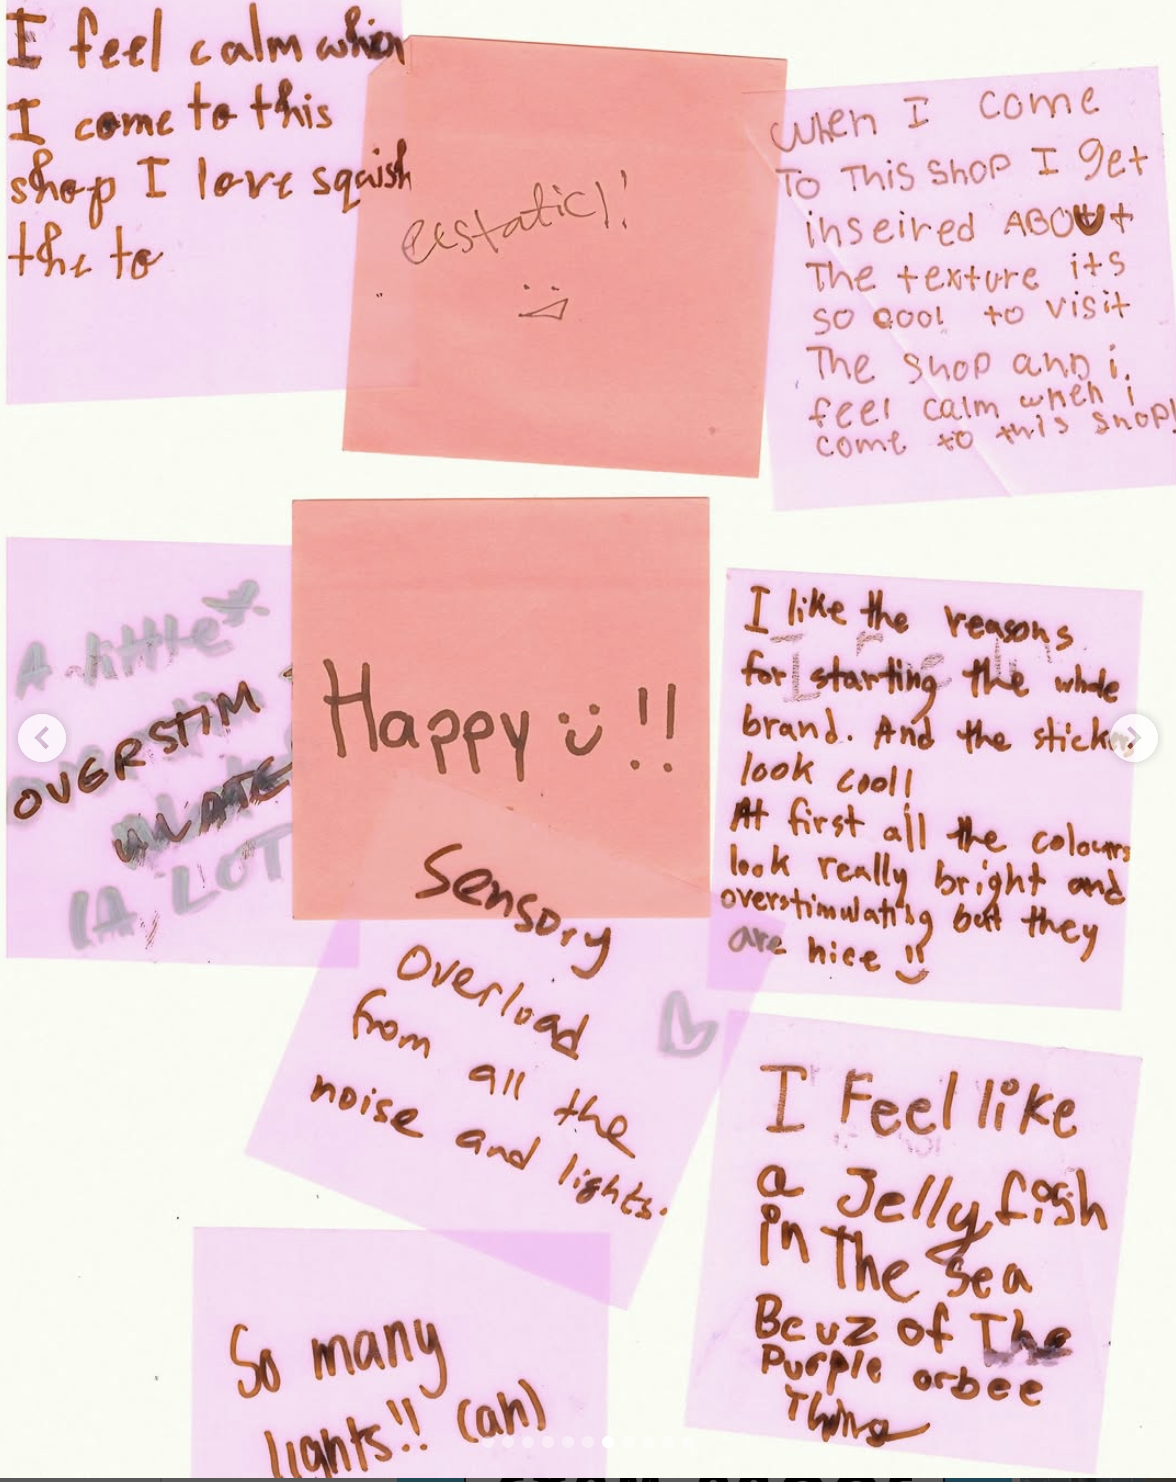 I feel calm when
I come to this
shop I love squish
the to
ecstatic!!
When I come
To This shop I get
inseired ABOUt
The texture its
so cool to visit
The shop and i.
feel calm when i
come to this shop!
A little
OVERSTIM
ULATE
(A LOT
Happy !!
I like the reasons
for starting the whole
brand. And the sticke
look cool!
At first all the colours
look really bright and
overstimulating but they
are nice !!
Sensory
Overload
from all the
noise and lights.
I Feel like
a Jelly fish
in The sea
Bcuz of The
Purple orbee
Thing
So many
lights!! (ah)